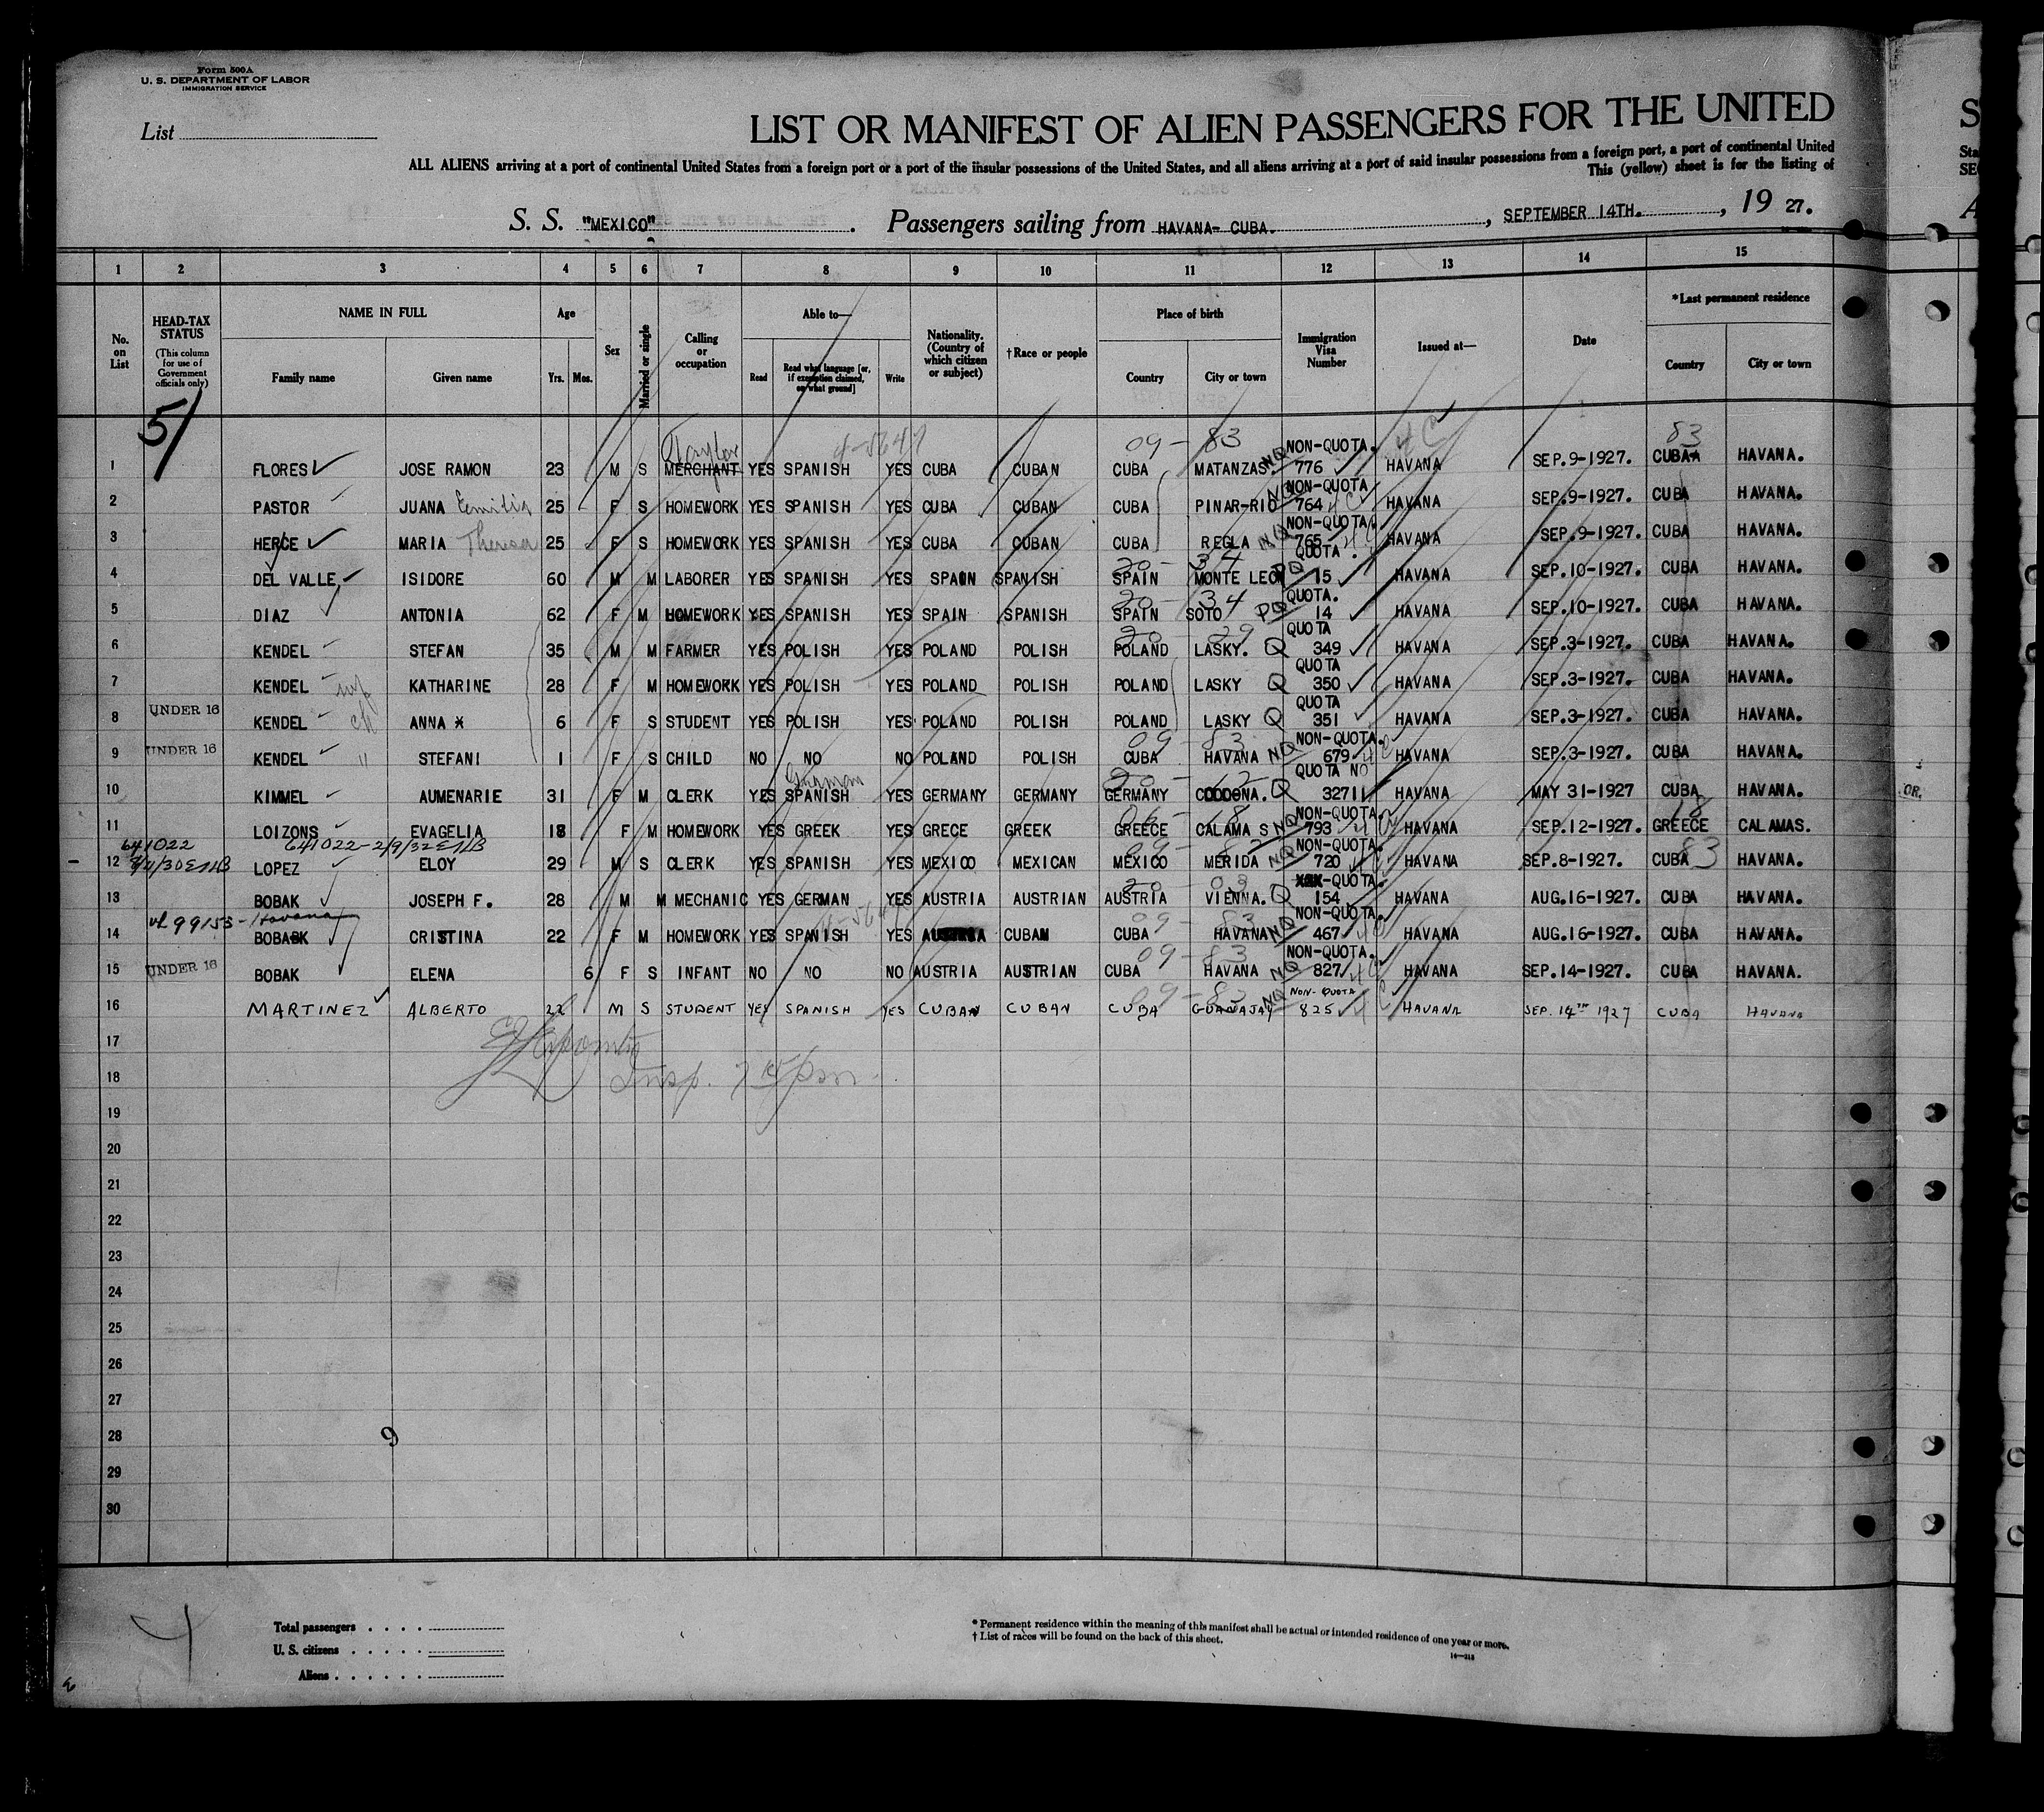 Form 500A
U. S. DEPARTMENT OF LABOR
IMMIGRATION SERVICE
List
LIST OR MANIFEST OF ALIEN PASSENGERS FOR THE UNITED
ALL ALIENS arriving at a port of continental United States from a foreign port or a port of the insular possessions of the United States, and all aliens arriving at a port of said insular possessions from a foreign port, a port of continental United
This (yellow) sheet is for the listing of
S. S. "MEXICO". Passengers sailing from HAVANA- CUBA., SEPTEMBER 14TH., 19 27.
1 2 3 4 5 6 7 8 9 10 11 12 13 14 15
No. on List
HEAD-TAX STATUS (This column for use of Government officials only)
NAME IN FULL Family name Given name
Age Yrs. Mos.
Sex
Married or single
Calling or occupation
Able to— Read Read what language [or, if exemption claimed, on what ground] Write
Nationality. (Country of which citizen or subject)
†Race or people
Place of birth Country City or town
Immigration Visa Number
Issued at—
Date
*Last permanent residence Country City or town
5/
09 - 83 NON-QUOTA. 4C 83
1 FLORES JOSE RAMON 23 M S MERCHANT YES SPANISH YES CUBA CUBAN CUBA MATANZAS. NQ 776 HAVANA SEP.9-1927. CUBAA HAVANA.
NON-QUOTA
2 PASTOR JUANA Emilia 25 F S HOMEWORK YES SPANISH YES CUBA CUBAN CUBA PINAR-RIO NQ 764 4C HAVANA SEP.9-1927. CUBA HAVANA.
NON-QUOTA
3 HERCE MARIA Theresa 25 F S HOMEWORK YES SPANISH YES CUBA CUBAN CUBA REGLA NQ 765 4C HAVANA SEP.9-1927. CUBA HAVANA.
20 - 34 QUOTA.
4 DEL VALLE, ISIDORE 60 M M LABORER YES SPANISH YES SPAIN SPANISH SPAIN MONTE LEON PQ 15 HAVANA SEP.10-1927. CUBA HAVANA.
20 - 34 QUOTA.
5 DIAZ ANTONIA 62 F M HOMEWORK YES SPANISH YES SPAIN SPANISH SPAIN SOTO PQ 14 HAVANA SEP.10-1927. CUBA HAVANA.
20 29 QUOTA
6 KENDEL STEFAN 35 M M FARMER YES POLISH YES POLAND POLISH POLAND LASKY. Q 349 HAVANA SEP.3-1927. CUBA HAVANA.
QUOTA
7 KENDEL wf KATHARINE 28 F M HOMEWORK YES POLISH YES POLAND POLISH POLAND LASKY Q 350 HAVANA SEP.3-1927. CUBA HAVANA.
QUOTA
8 UNDER 16 KENDEL ch ANNA X 6 F S STUDENT YES POLISH YES POLAND POLISH POLAND LASKY Q 351 HAVANA SEP.3-1927. CUBA HAVANA.
09 - 83 NON-QUOTA.
9 UNDER 16 KENDEL " STEFANI 1 F S CHILD NO NO NO POLAND POLISH CUBA HAVANA NQ 679 4C HAVANA SEP.3-1927. CUBA HAVANA.
German 20 - 12 QUOTA NO
10 KIMMEL AUMENARIE 31 F M CLERK YES SPANISH YES GERMANY GERMANY GERMANY Q 32711 HAVANA MAY 31-1927 CUBA HAVANA.
18 NON-QUOTA. 18
11 LOIZONS EVAGELIA 18 F M HOMEWORK YES GREEK YES GRECE GREEK GREECE CALAMA S NQ 793 4C HAVANA SEP.12-1927. GREECE CALAMAS.
641022 641022-2/9/32 09 - NON-QUOTA.
12 LOPEZ ELOY 29 M S CLERK YES SPANISH YES MEXICO MEXICAN MEXICO MERIDA NQ 720 HAVANA SEP.8-1927. CUBA 83 HAVANA.
20 - 03 XXX-QUOTA.
13 BOBAK JOSEPH F. 28 M M MECHANIC YES GERMAN YES AUSTRIA AUSTRIAN AUSTRIA VIENNA. Q 154 HAVANA AUG.16-1927. CUBA HAVANA.
99153 - Havana 09 - 83 NON-QUOTA.
14 BOBABK CRISTINA 22 F M HOMEWORK YES SPANISH YES CUBAN CUBA HAVANA NQ 467 4C HAVANA AUG.16-1927. CUBA HAVANA.
09 - 83 NON-QUOTA.
15 UNDER 16 BOBAK ELENA 6 F S INFANT NO NO NO AUSTRIA AUSTRIAN CUBA HAVANA NQ 827 4C HAVANA SEP.14-1927. CUBA HAVANA.
09 - 83 NON-QUOTA
16 MARTINEZ ALBERTO 22 M S STUDENT YES SPANISH YES CUBAN CUBAN CUBA GUANAJAY NQ 825 4C HAVANA SEP. 14TH 1927 CUBA HAVANA
17
Insp.
18
19
20
21
22
23
24
25
26
27
28 9
29
30
Total passengers
U. S. citizens
Aliens
* Permanent residence within the meaning of this manifest shall be actual or intended residence of one year or more.
† List of races will be found on the back of this sheet.